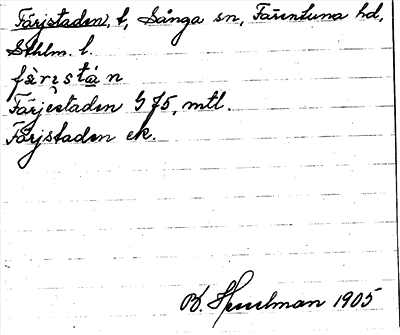 Färjstaden, t, Sånga sn, Färentuna hd,
Sthlm. l.
fä̀rıstá̱n
Färjestaden G 75, mtl.
Färjstaden ek.
1905